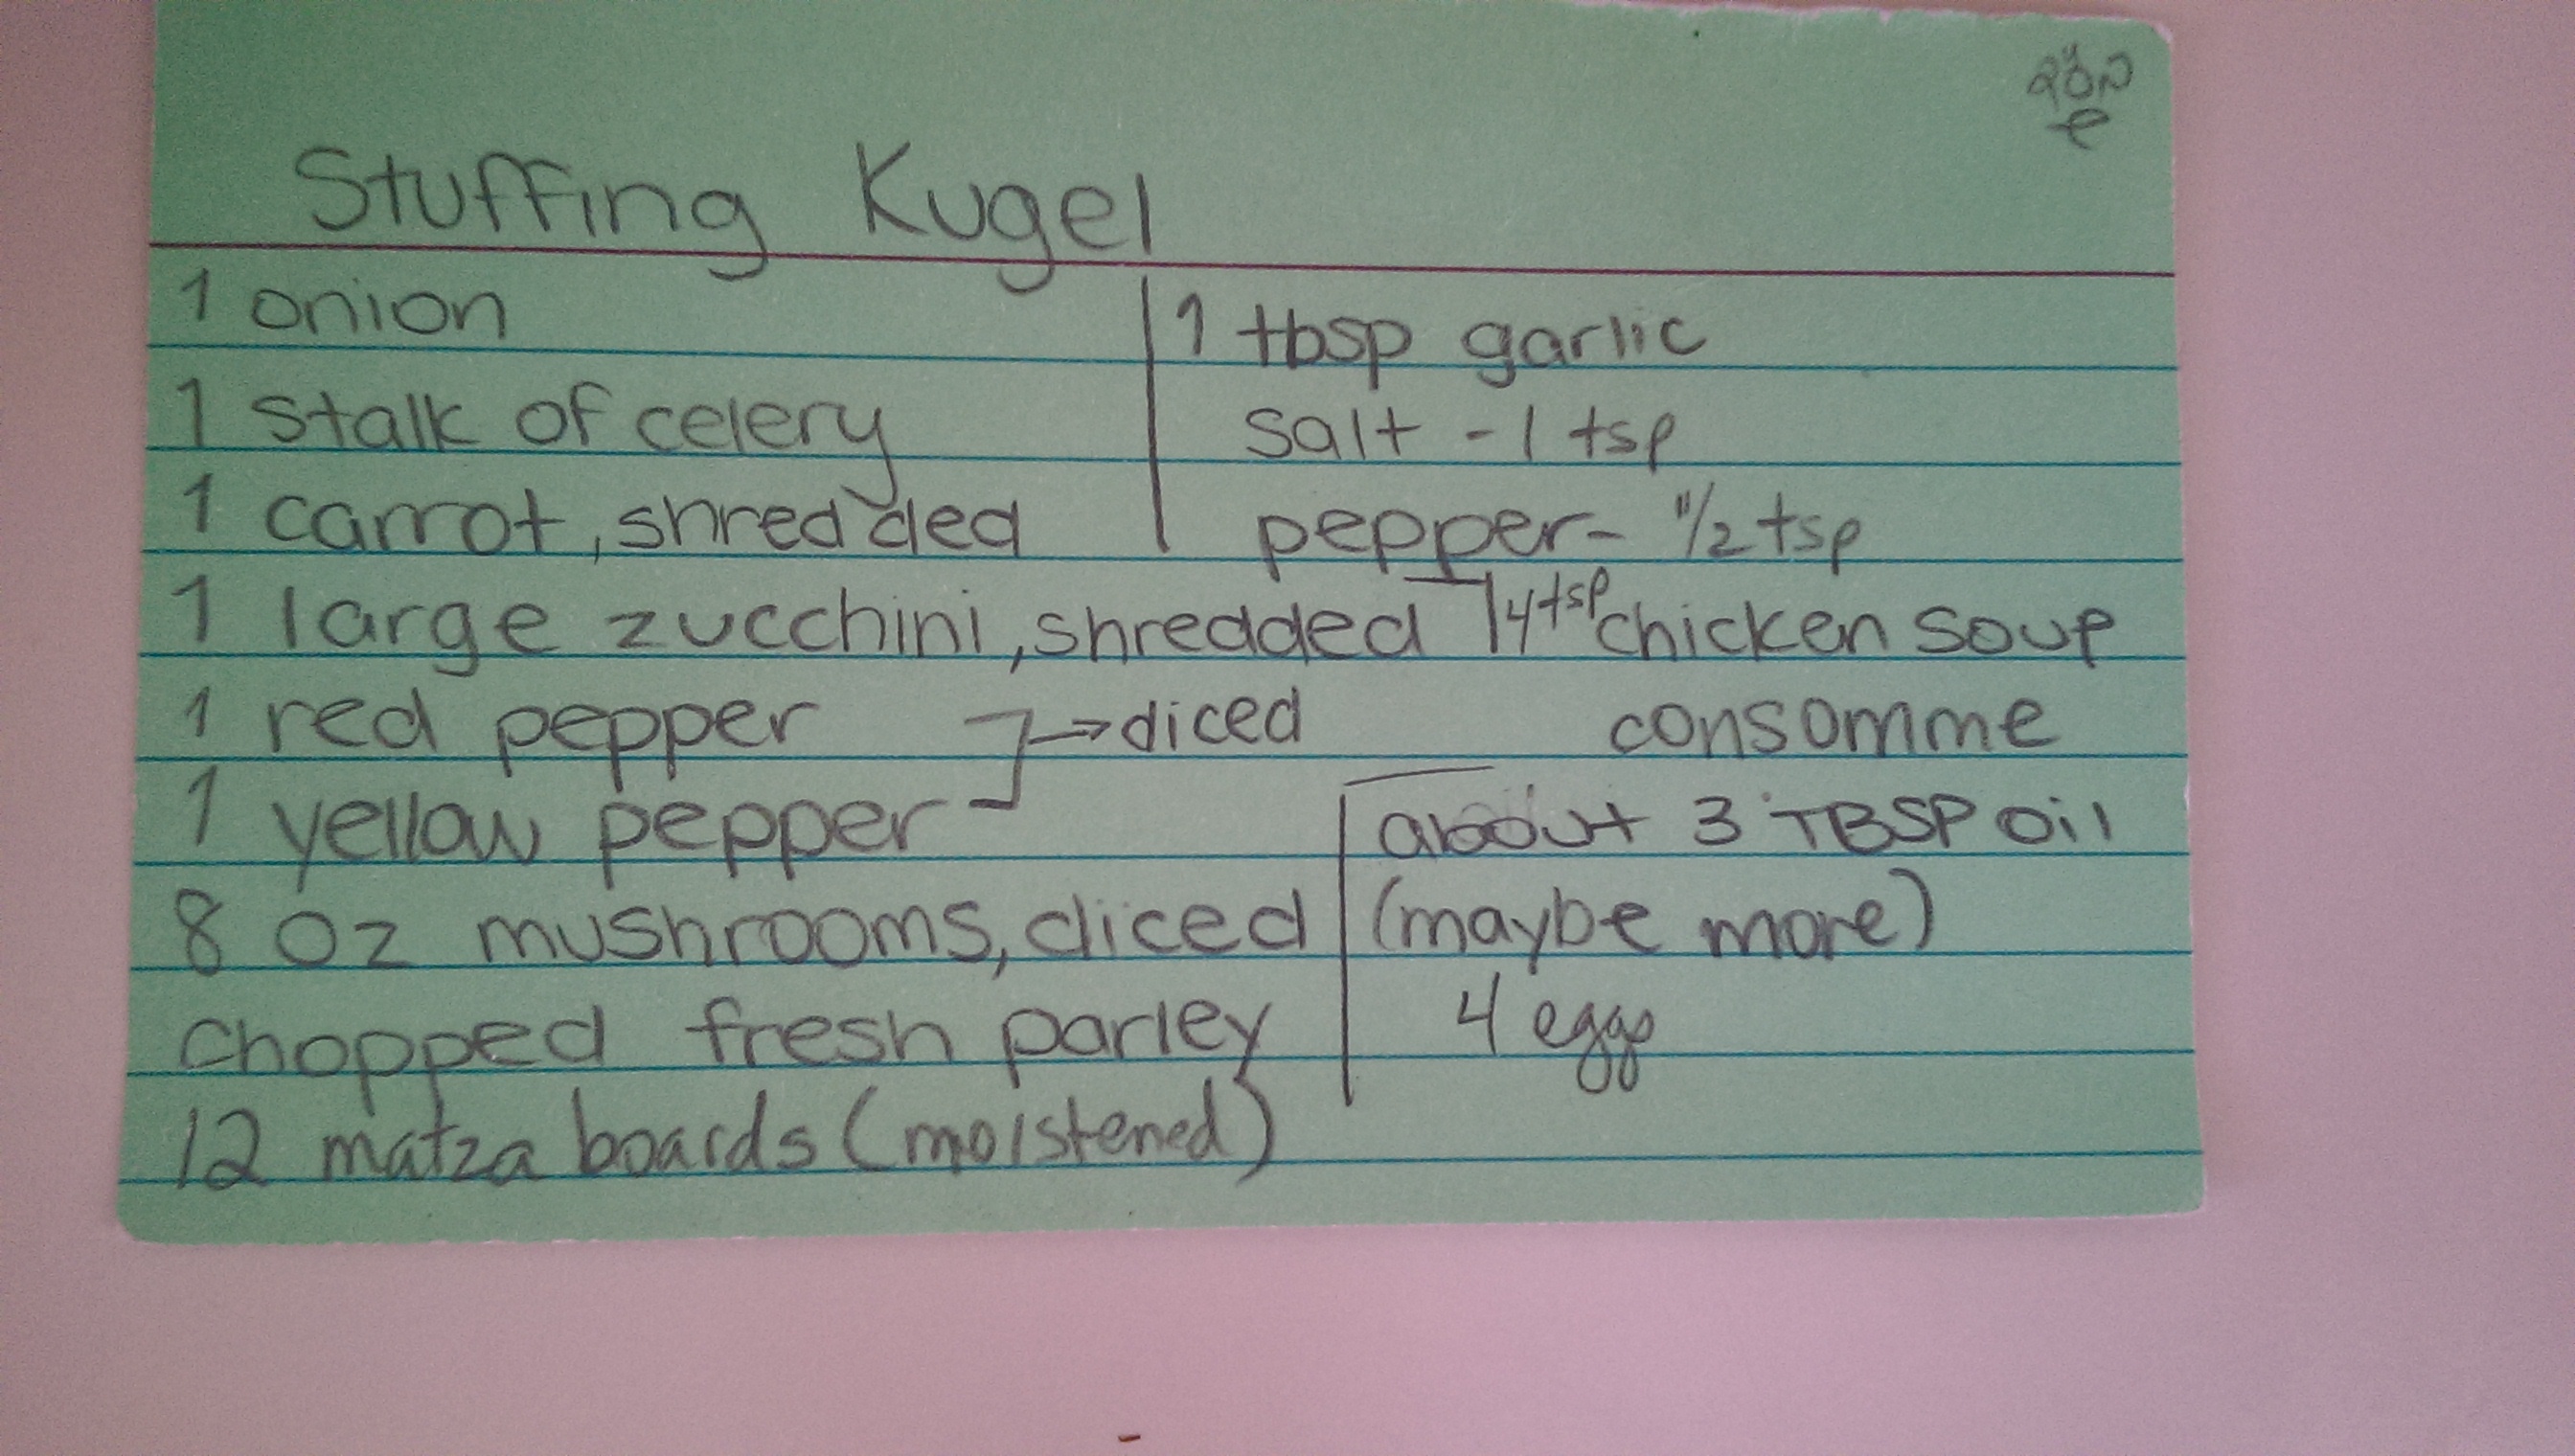 Stuffing Kugel
1 onion
1 stalk of celery
1 carrot, shredded
1 large zucchini, shredded
1 red pepper
1 yellow pepper
→ diced
8 oz mushrooms, diced
chopped fresh parley
12 matza boards (moistened)
1 tbsp garlic
salt - 1 tsp
pepper - 1/2 tsp
1/4 tsp chicken soup
consomme
about 3 TBSP oil
(maybe more)
4 eggs